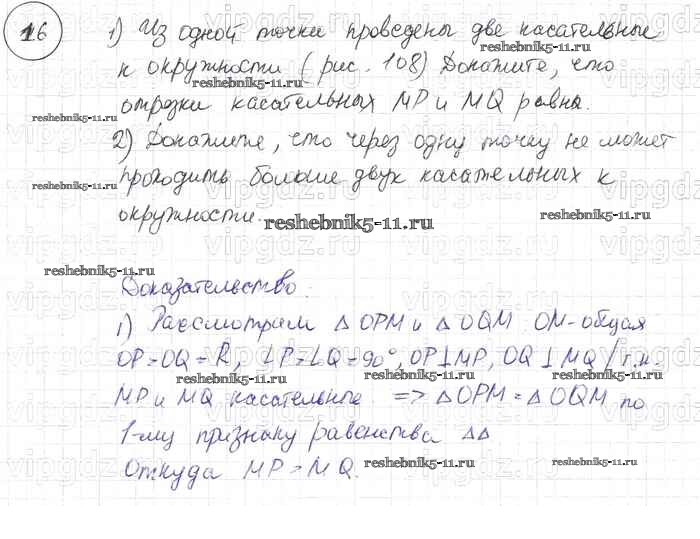 16
1) Из одной точки проведены две касательные
к окружности (рис. 108) Докажите, что
отрезки касательных MP и MQ равны.
2) Докажите, что через одну точку не может
проходить больше двух касательных к
окружности.
Доказательство:
1) Рассмотрим △ OPM и △ OQM OM-общая
OP = OQ = R, ∠P = ∠Q = 90°, OP⊥MP, OQ ⊥ MQ /т.к.
MP и MQ касательные => △ OPM = △ OQM по
1-му признаку равенства △△
Откуда MP = MQ.
reshebnik5-11.ru
reshebnik5-11.ru
reshebnik5-11.ru
reshebnik5-11.ru
reshebnik5-11.ru
reshebnik5-11.ru
reshebnik5-11.ru
reshebnik5-11.ru
reshebnik5-11.ru
reshebnik5-11.ru
reshebnik5-11.ru